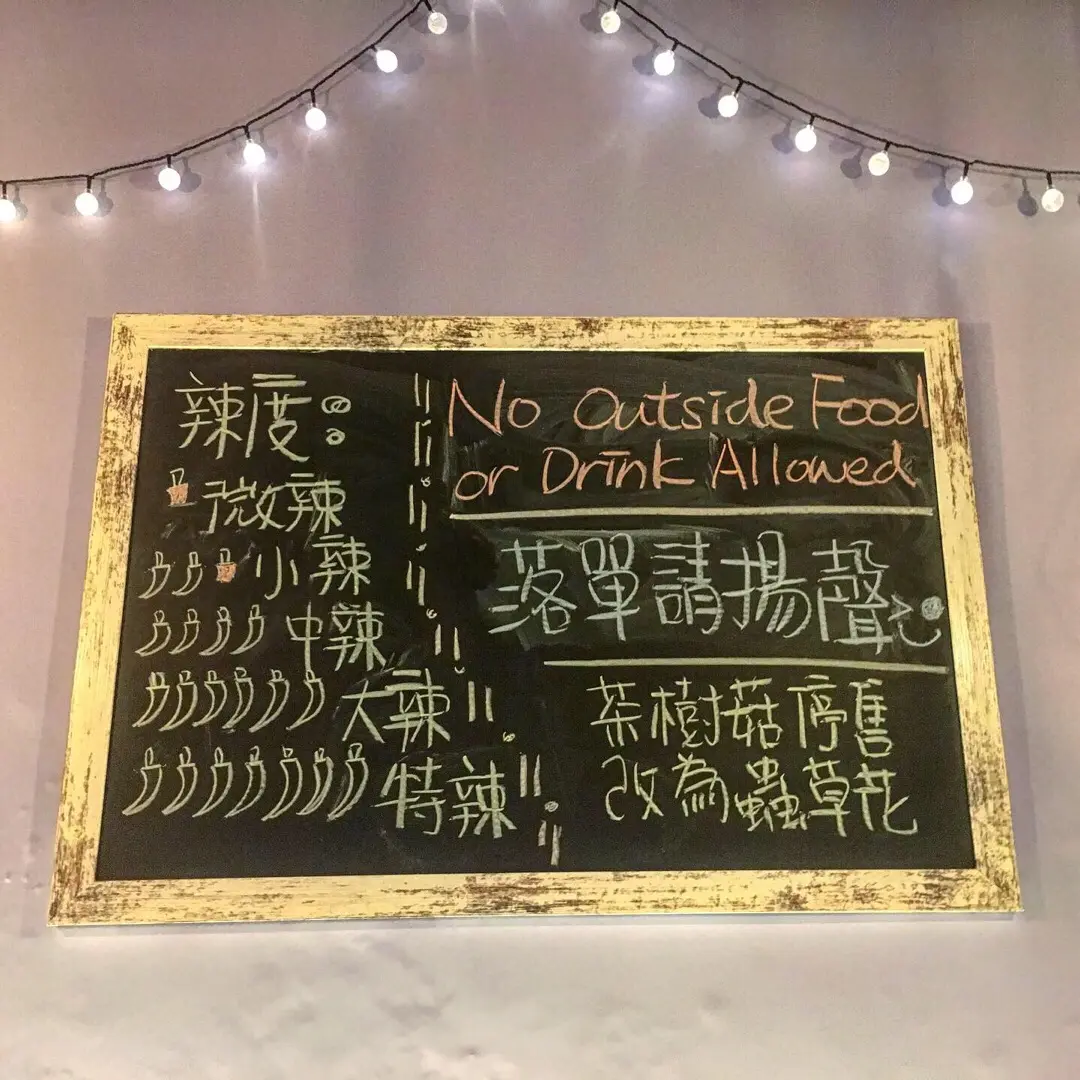 辣度：
微辣
小辣
中辣
大辣
特辣
No Outside Food
or Drink Allowed
落單請揚聲
茶樹菇停售
改為蟲草花